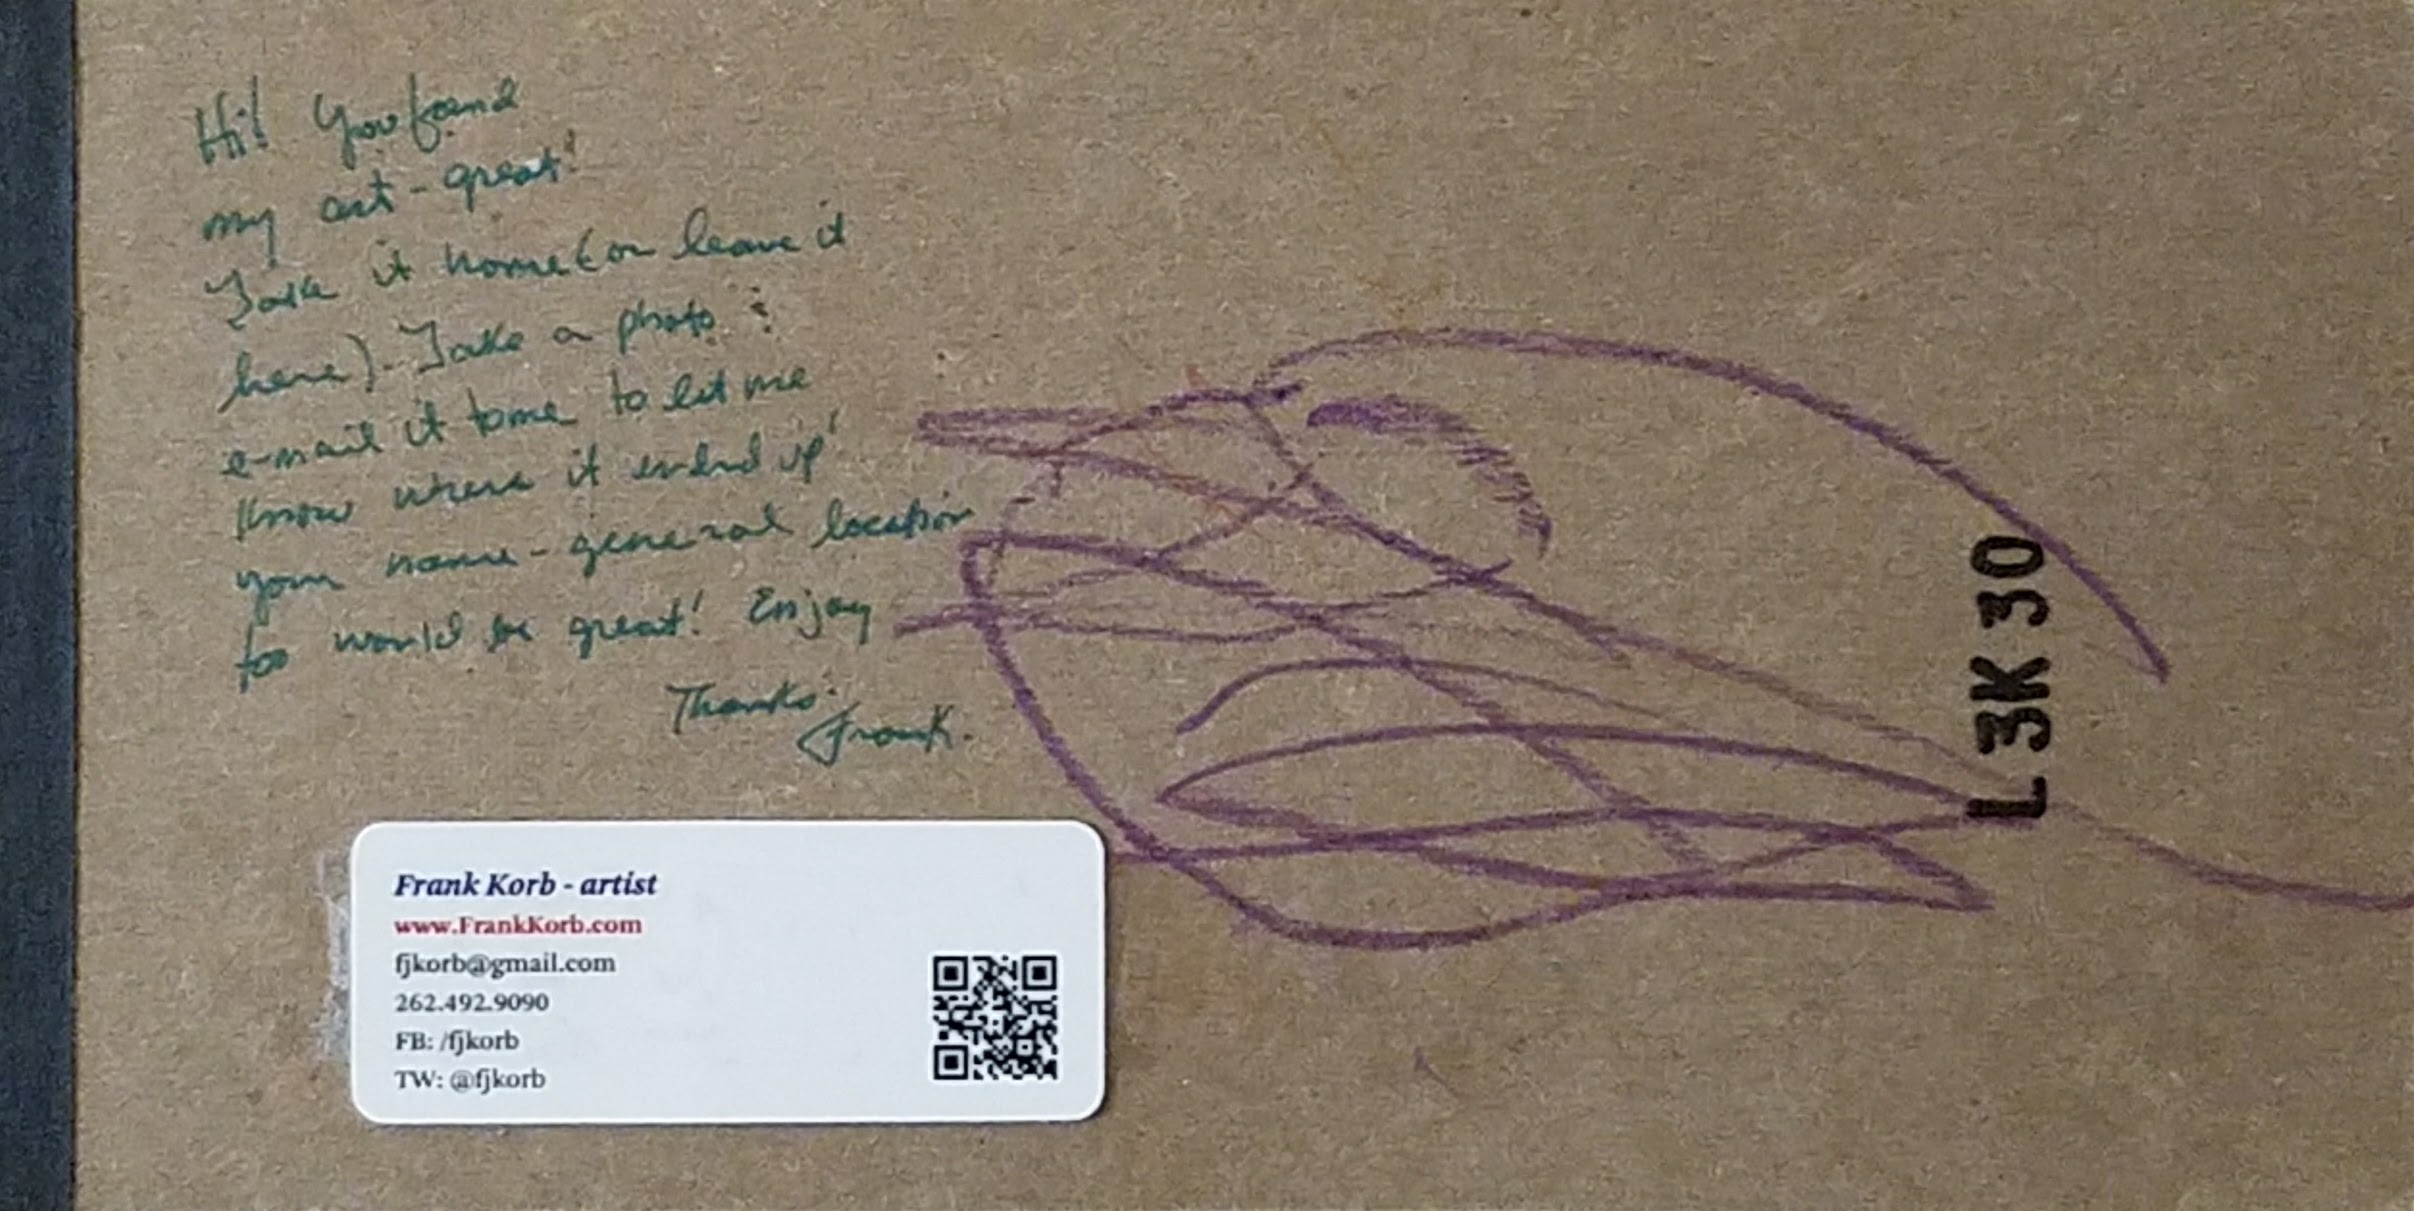 Hi! You found
my art - great!
Take it home (or leave it
here). Take a photo &
e-mail it to me to let me
know where it ended up!
your name - general location
too would be great! Enjoy
Thanks.
Frank.
Frank Korb - artist
www.FrankKorb.com
fjkorb@gmail.com
262.492.9090
FB: /fjkorb
TW: @fjkorb
L3K 30